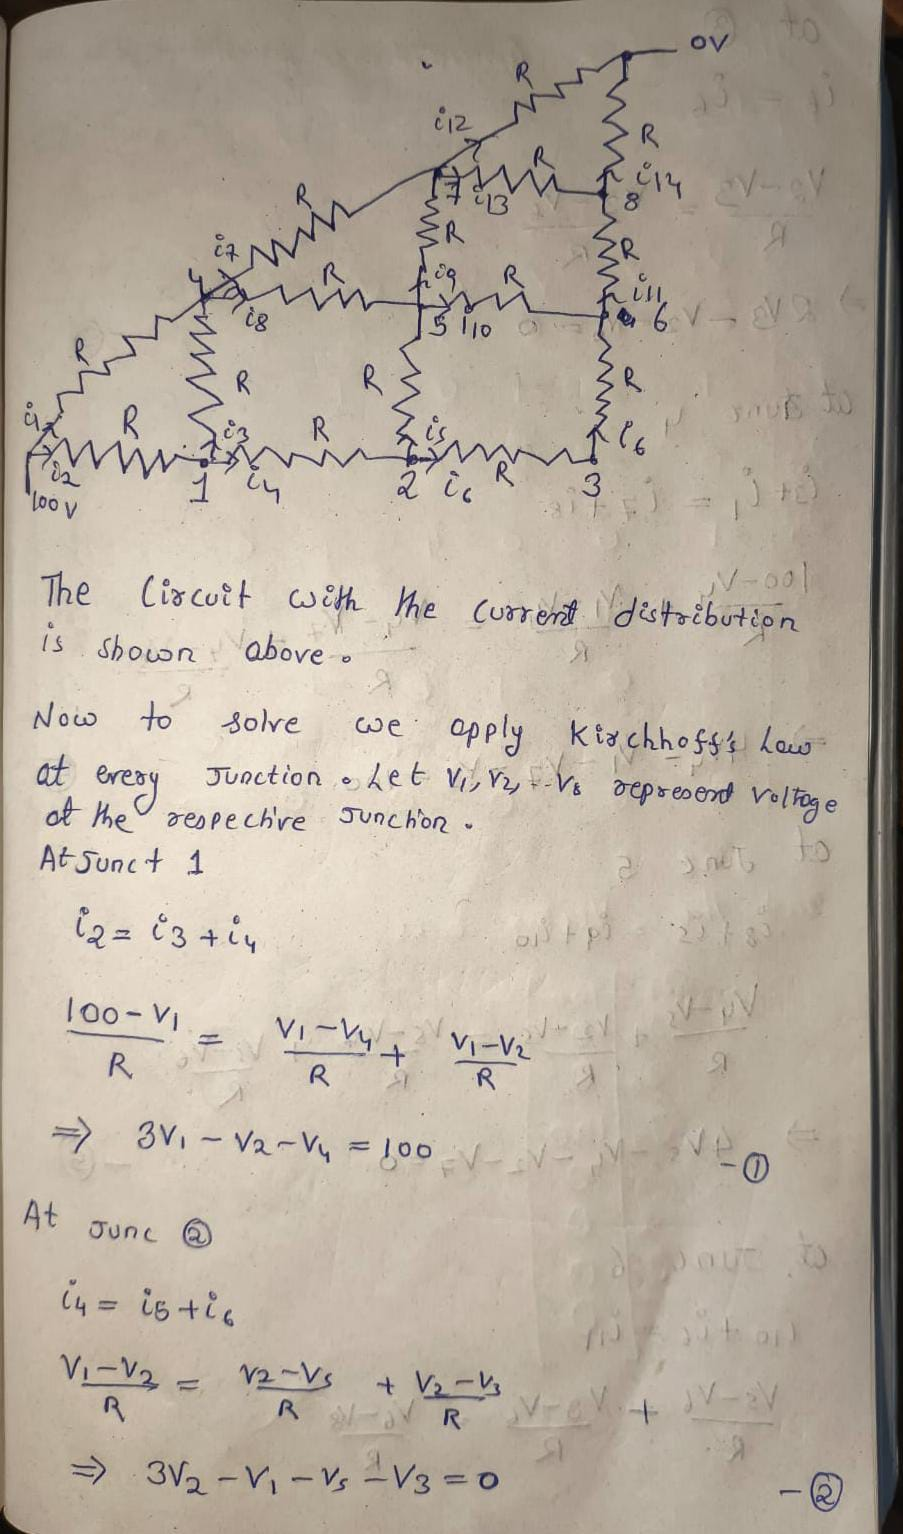 0V
R
i12
R
R
i14
7
i13
8
R
R
R
i7
4
R
i9
R
i11
i8
5
i10
6
R
R
R
R
i1
R
i3
R
i5
i6
i2
1
i4
2
i6
R
3
100V
The Circuit with the current distribution
is shown above.
Now to solve we apply Kirchhoff's Law
at every Junction. Let V1, V2, --V8 represent voltage
at the respective Junction.
At Junct 1
i2 = i3 + i4
100-V1/R = V1-V4/R + V1-V2/R
⇒ 3V1 - V2 - V4 = 100 -①
At Junc ②
i4 = i5 + i6
V1-V2/R = V2-V5/R + V2-V3/R
⇒ 3V2 - V1 - V5 - V3 = 0 -②